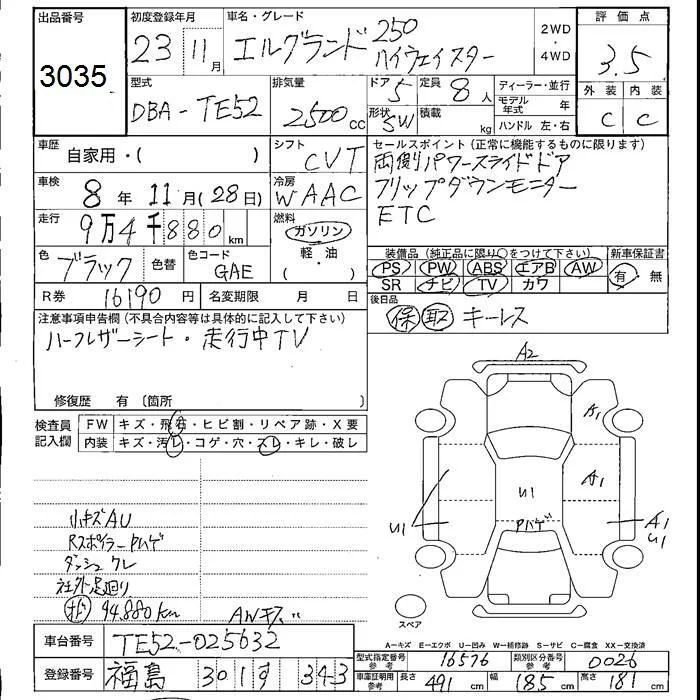 出品番号
3035
初度登録年月
23 11月
車名・グレード
エルグランド 250
ハイウェイスター
2WD
・
4WD
評価点
3.5
外装 内装
C C
型式
DBA-TE52
排気量
2500cc
ドア 5
形状 SW
定員 8人
積載 kg
ディーラー・並行
モデル年式 年
ハンドル 左・右
車歴
自家用・( )
シフト
CVT
セールスポイント(正常に機能するものに限ります)
両側パワースライドドア
フリップダウンモニター
ETC
車検
8年 11月(28日)
冷房
WAAC
走行
9万4千880km
燃料
ガソリン
軽・油
( )
色
ブラック
色替
色コード
GAE
装備品(純正品に限り○をつけて下さい)
PS PW ABS エアB AW
SR ナビ TV カワ
新車保証書
有・無
R券 16190円
名変期限 月 日
後日品
保 取 キーレス
注意事項申告欄(不具合内容等は具体的に記入して下さい)
ハーフレザーシート・走行中TV
修復歴 有〔箇所 〕
検査員
記入欄
FW キズ・飛石・ヒビ割・リペア跡・X要
内装 キズ・汚レ・コゲ・穴・スレ・キレ・破レ
小キズAU
RスポイラーPハゲ
ダッシュクレ
社外足廻り
94.880km
AWキズ
A2
A1
A1
U1
Pハゲ
U1
A1
U1
スペア
A-キズ E-エクボ U-凹み W-補修跡 S-サビ C-腐食 XX-交換済
車台番号
TE52-025632
登録番号
福島 301 す 343
型式指定番号
参考
16576
類別区分番号
参考
0026
車庫証明用
参考
長さ 491cm
幅 185cm
高さ 181cm